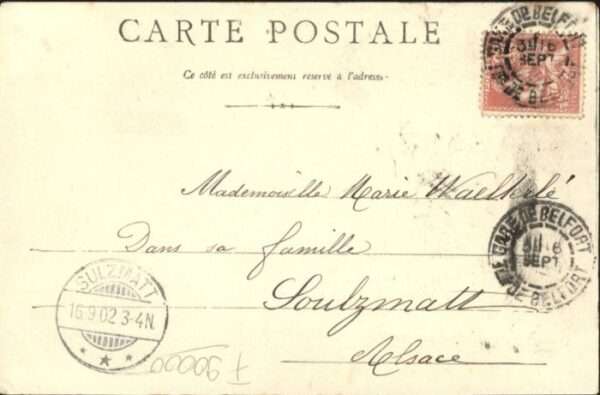 CARTE POSTALE
Ce côté est exclusivement réservé à l'adresse
GARE DE BELFORT
16
SEPT
DE BELFORT
Mademoiselle Marie
Dans sa famille
Soultzmatt
Alsace
GARE DE BELFORT
16
SEPT
DE BELFORT
SULZMATT
16.9.02 3-4N.